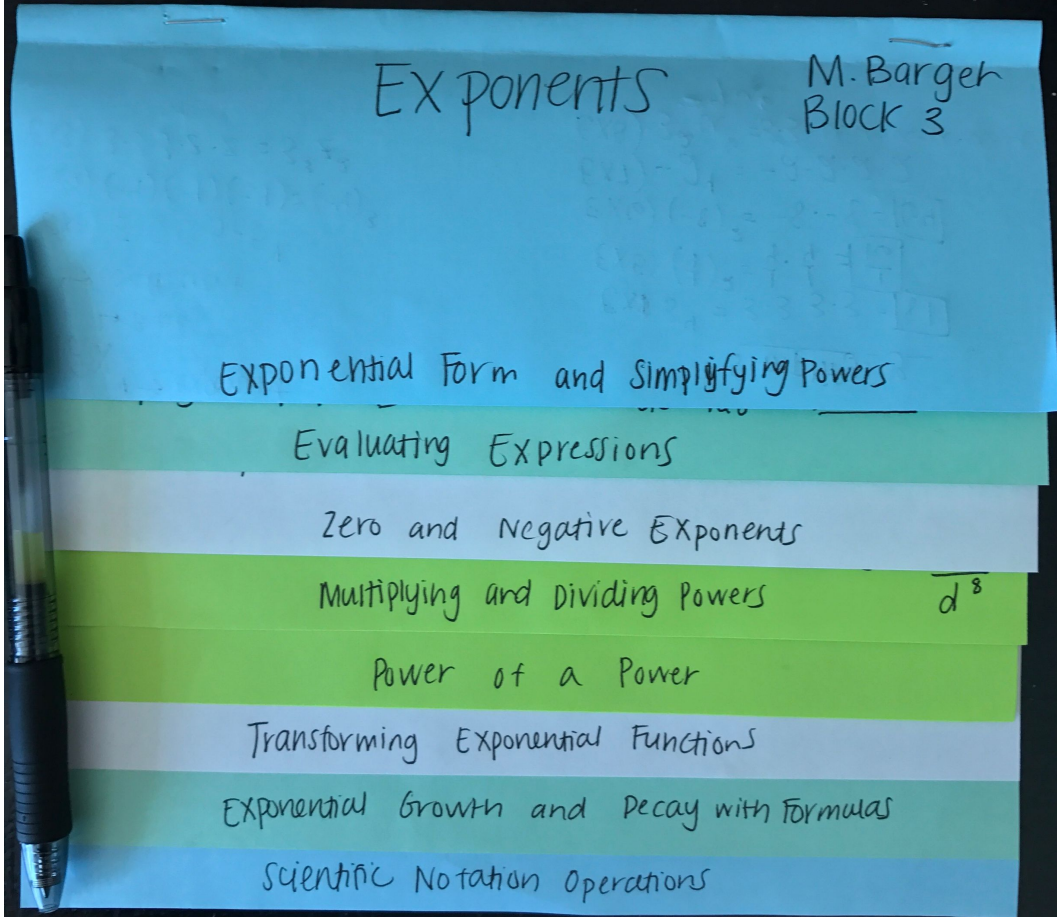 Exponents
M. Barger
Block 3
Exponential Form and Simplifying Powers
Evaluating Expressions
Zero and Negative Exponents
Multiplying and Dividing Powers
d⁸
Power of a Power
Transforming Exponential Functions
Exponential Growth and Decay with Formulas
Scientific Notation Operations